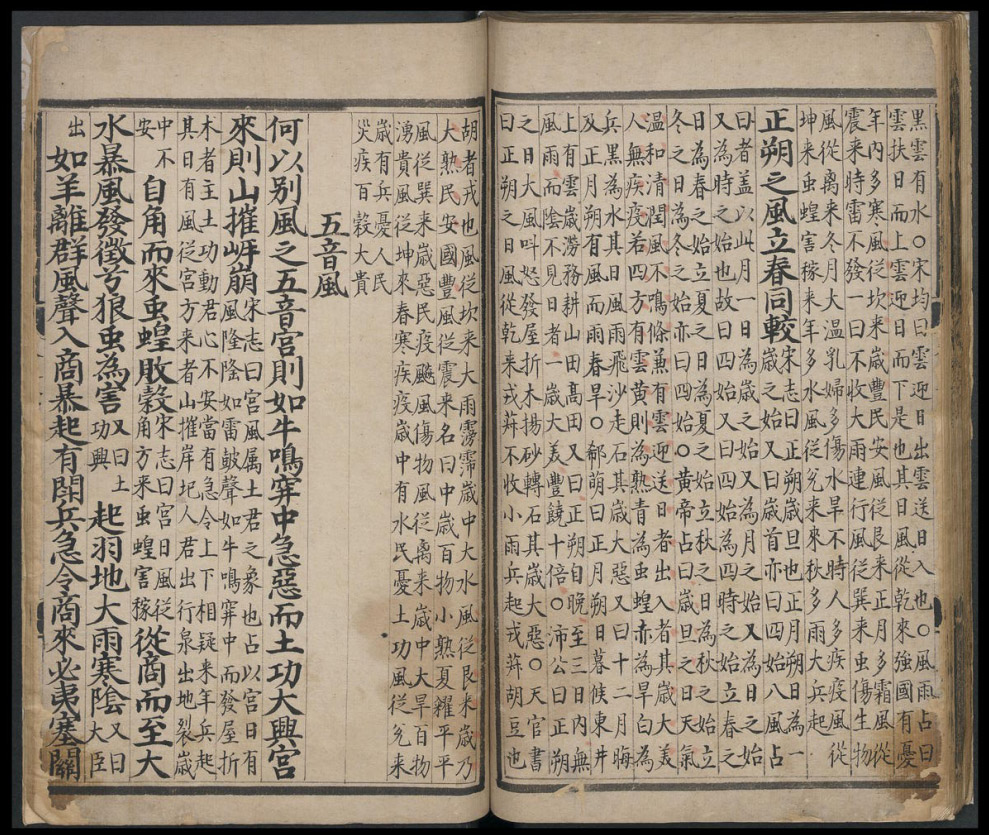 黒雲有水○宋均曰雲迎日出雲送日入也○風雨占曰
雲扶日而上雲迎日而下是也其日風從乾來強國有憂
年內多寒風從坎来歲豊民安風從艮来正月多霜風從
震来時雷不發一曰不收大雨連行風從巽来虫傷生物
風從离来冬月大温乳婦多傷水旱不時人多疾疫風從
坤来来虫蝗害稼来年多水風從兊来来秋多雨大兵起
正朔之風立春同較
宋志曰正朔歲旦也正月朔日為一
歲之始又曰歲首亦曰四始八風占
曰者盖以此月一日為歲之始又為月之始又為日之始
又為時之始也故曰四始又曰四始為四時之始立春之
日為春之始立夏之日為夏之始立秋之日為秋之始立
冬之日為冬之始亦曰四始○黄帝占曰歲旦之日天氣
温和清潤風不鳴條兼有雲迎送日者出入者其歲大美
人無疾疫若四方有雲黄則為熟青為虫蝗赤為旱白為
兵黒為水其日風雨飛沙走石其歲大惡又曰十二月晦
及正月朔有風而雨春旱○郗萌曰正月朔日暮候東井
上有雲歲澇務耕山田髙田又曰正朔自晚至三日内無
風雨而陰不見日者一歲大美豐饒十倍○沛公曰正朔
之日大風叫怒發屋折木揚砂轉石其歲大惡○天官書
曰正朔之日風從乾来戎菽不收小雨兵起戎菽胡豆也
胡者戎也風從坎来大雨霶霈歲中大水風從艮来歲乃
大熟民安國豊風從震来名曰中歲百物小熟夏糴平平
風從巽来歲惡民疫颷風傷物風從离来歲中大旱百物
湧貴風從坤来春寒疾疫歲中有水民憂土功風從兊来
歲有兵憂人民
災疾百穀大貴
五音風
何以别風之五音宫則如牛鳴穽中急惡而土功大興宫
來則山摧岍崩
宋志曰宫風属土君之象也占以宫日有
風隆隆如雷皷聲如牛鳴穽中而發屋折
木者主土功動君心不安當有急令上下相疑来年兵起
其日有風從宫方来者山摧岸圮人君出行泉出地裂歲
中不
安
自角而來虫蝗敗穀
宋志曰宫日風從
角方来虫蝗害稼
從商而至大
水暴風發徵兮狼虫為害
又曰土
功興
起羽地大雨寒陰
又曰
大臣
出
如羊離群風聲入商暴起有閗兵急令商來必夷塞關